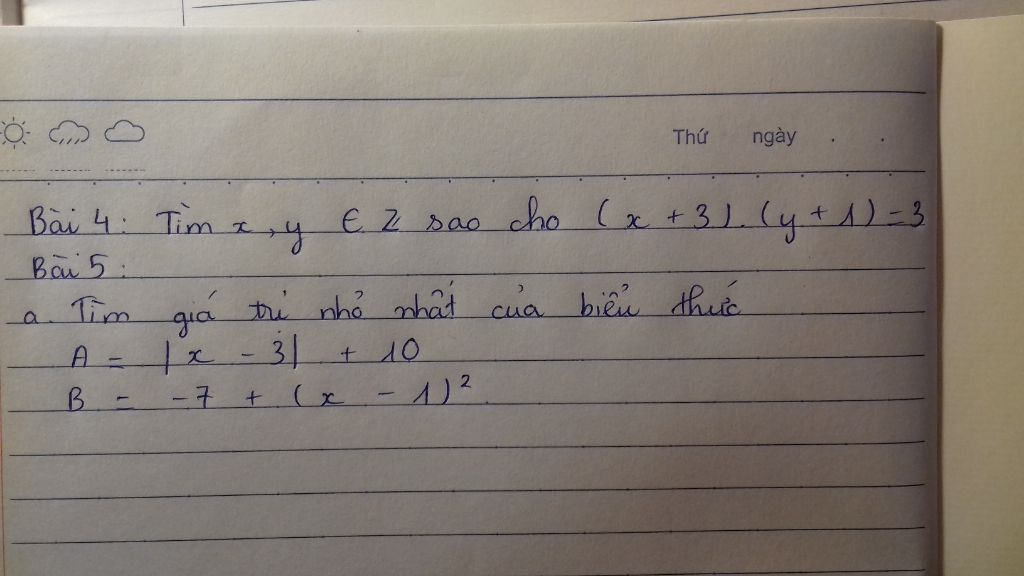 Thứ ngày . .
Bài 4 : Tìm x , y ∈ Z sao cho ( x + 3 ) . ( y + 1 ) = 3
Bài 5 :
a. Tìm giá trị nhỏ nhất của biểu thức
A = | x - 3 | + 10
B = - 7 + ( x - 1 )²